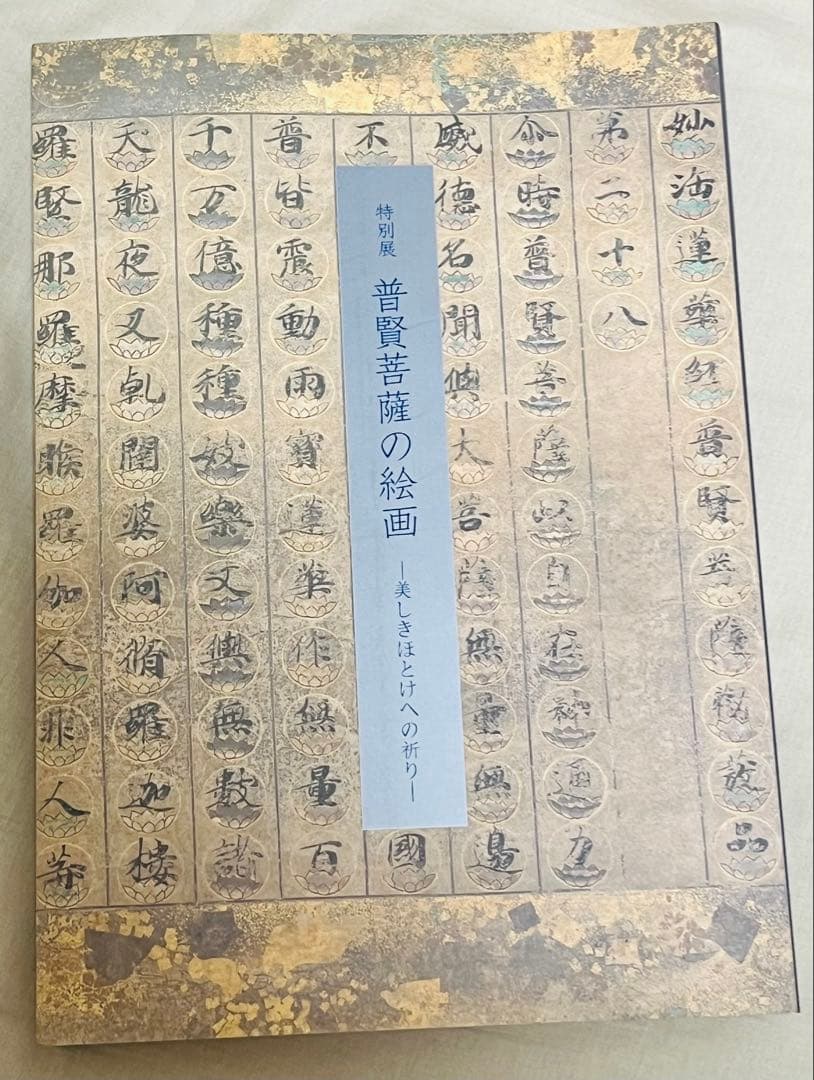 妙法蓮華経普賢菩薩勸發品
第二十八
尒時普賢菩薩以自在神通力
威德名聞與大菩薩無量無邊
不
國
特別展
普賢菩薩の絵画
―美しきほとけへの祈り―
普皆震動雨寶蓮華作無量百
千万億種種妓樂又與無數諸
天龍夜叉乹闥婆阿脩羅迦樓
羅緊那羅摩睺羅伽人非人等